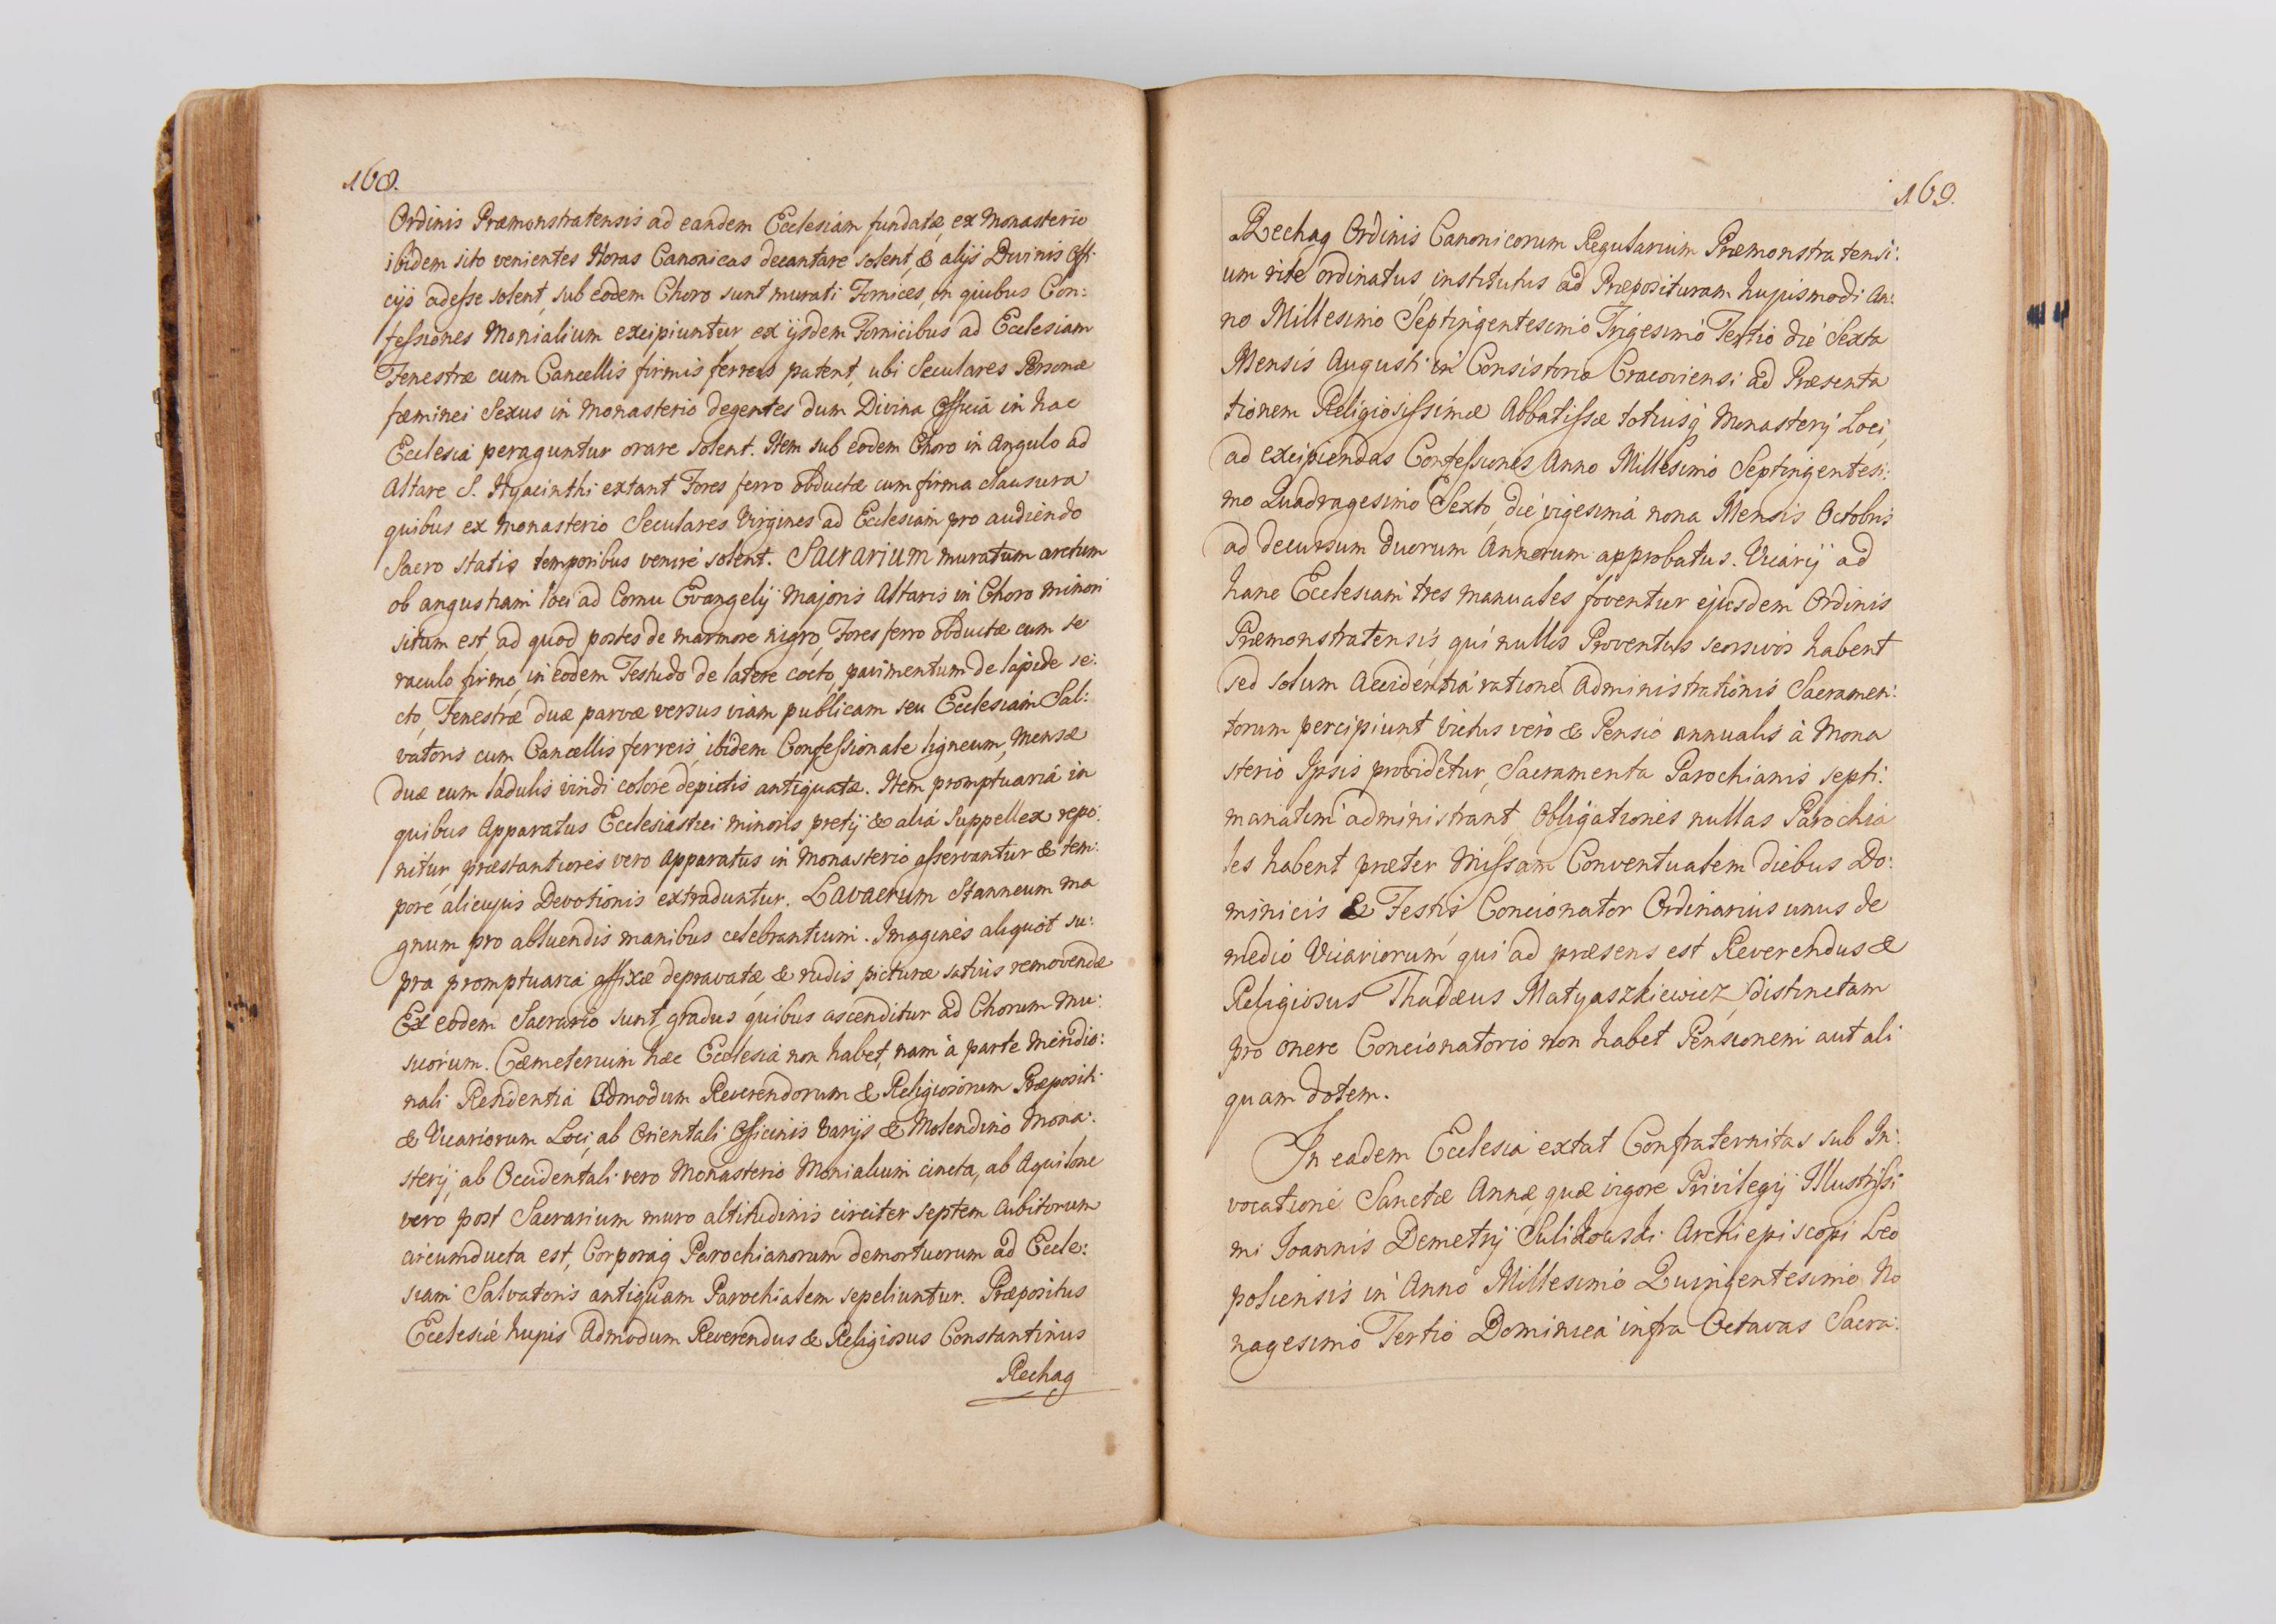 168.
Ordinis Præmonstratensis ad eandem Ecclesiam fundatæ, ex Monasterio
ibidem sito venientes Horas Canonicas decantare solent, & alijs Divinis Offi:
cijs adesse solent, sub eodem Choro sunt murati Fornices, in quibus Con:
fessiones Monialium excipiuntur, ex ijsdem Fornicibus ad Ecclesiam
Fenestræ cum Cancellis firmis ferreis patent, ubi Seculares Personæ
fæminei Sexus in Monasterio degentes dum Divina Officia in hac
Ecclesia peraguntur orare solent. Item sub eodem Choro in Angulo ad
Altare S. Hyacinthi extant Fores ferro obductæ cum firma clausura
quibus ex Monasterio Seculares Virgines ad Ecclesiam pro audiendo
Sacro statis temporibus venire solent. Sacrarium muratum arctum
ob angustiam loci ad Cornu Evangelij Majoris Altaris in Choro minori
situm est, ad quod postes de marmore nigro, Fores ferro obductæ cum se
raculo firmo, in eodem Testudo de latere cocto, pavimentum de lapide se:
cto, Fenestræ duæ parvæ versus viam publicam seu Ecclesiam Sal:
vatoris cum Cancellis ferreis, ibidem Confessionale ligneum, Mensæ
duæ cum ladulis viridi colore depictis antiquatæ. Item promptuaria in
quibus Apparatus Ecclesiastici minoris pretij & alia Suppellex repo:
nitur, præstantiores vero Apparatus in Monasterio asservantur & tem:
pore alicujus Devotionis extraduntur. Lavacrum Stanneum ma
gnum pro abluendis manibus celebrantium. Imagines aliquot su:
pra promptuaria affixæ depravatæ, & rudis picturæ satius removendæ
Ex eodem Sacrario sunt gradus quibus ascenditur ad Chorum Mu:
sicorum. Cæmeterium hæc Ecclesia non habet, nam à parte meridio:
nali Residentia Admodum Reverendorum & Religiosorum Præpositi
& Vicariorum Loci, ab Orientali Officinis varijs & Molendino Mona:
sterij, ab Occidentali vero Monasterio Monialium cincta, ab Aquilone
vero post Sacrarium muro altitudinis circiter septem Cubitorum
circumducta est, Corporaq Parochianorum demortuorum ad Eccle:
siam Salvatoris antiquam Parochialem sepeliuntur. Præpositus
Ecclesiæ hujus Admodum Reverendus & Religiosus Constantinus
Rechag
169.
Rechag Ordinis Canonicorum Regularium Præmonstratensi:
um rite ordinatus, institutus ad Præposituram hujusmodi An:
no Millesimo Septingentesimo Trigesimo Tertio die Sexta
Mensis Augusti in Consistorio Cracoviensi ad Præsenta
tionem Religiosissimæ Abbatissæ totiusq Monasterij Loci,
ad excipiendas Confessiones Anno Millesimo Septingentesi:
mo Quadragesimo Sexto, die vigesima nona Mensis Octobris
ad decursum duorum Annorum approbatus. Vicarij ad
hanc Ecclesiam tres manuales foventur ejusdem Ordinis
Præmonstratensis, qui nullos Proventus seorsivos habent
sed solum Accidentia ratione Administrationis Sacramen:
torum percipiunt victus vero & Pensio annualis à Mona
sterio Ipsis providetur, Sacramenta Parochianis septi:
manatim administrant, Obligationes nullas Parochia
les habent præter Missam Conventualem diebus Do:
minicis & Festis, Concionator Ordinarius unus de
medio Vicariorum, qui ad præsens est Reverendus &
Religiosus Thadæus Matyaszkiewicz, distinctam
pro onere Concionatorio non habet Pensionem aut ali
quam dotem.
In eadem Ecclesia extat Confraternitas sub In:
vocatione Sanctæ Annæ, quæ vigore Privilegij Illustrissi
mi Joannis Demetrij Sulikowski Archiepiscopi Leo
poliensis in Anno Millesimo Quingentesimo No
nagesimo Tertio Dominica infra Octavas Sacra: